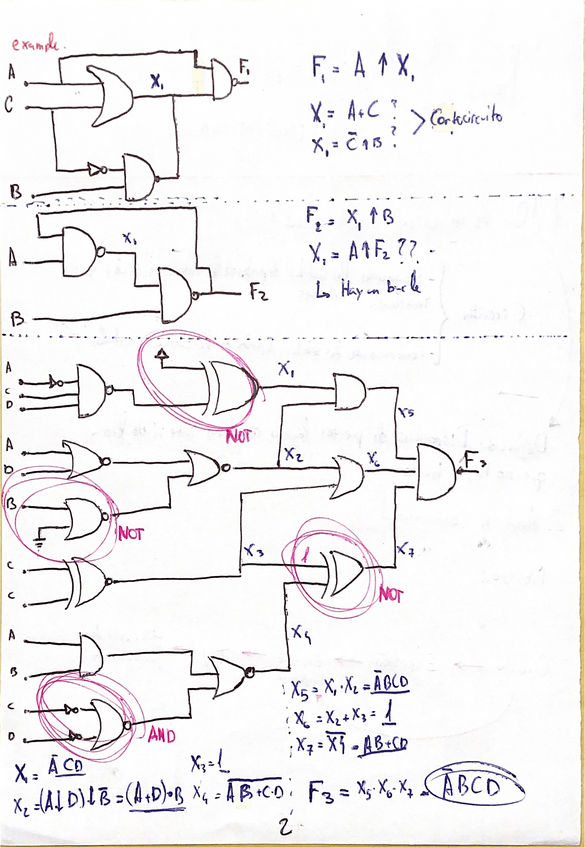 example.
A
C
B
X₁
F₁
F₁ = A ↑ X₁
X₁ = A+C ?
X₁ = C̅↑B ?
> Cortocircuito
A
B
X₁
F₂
F₂ = X₁ ↑ B
X₁ = A↑F₂ ??
↳ Hay un bucle
A
C
D
NOT
X₁
X₅
A
D
B
NOT
X₂
X₆
F₃
C
C
X₃
1
NOT
X₇
A
B
X₄
C
D
AND
X₅ = X₁·X₂ = A̅BCD
X₆ = X₂+X₃ = 1
X₇ = X̅₄̅ = AB+CD
X₁ = A̅CD
X₃=1
X₂=(A↓D)↓B̅ = (A+D)·B
X₄ = A̅B̅+̅C̅·̅D̅
F₃ = X₅·X₆·X₇ = A̅BCD
2